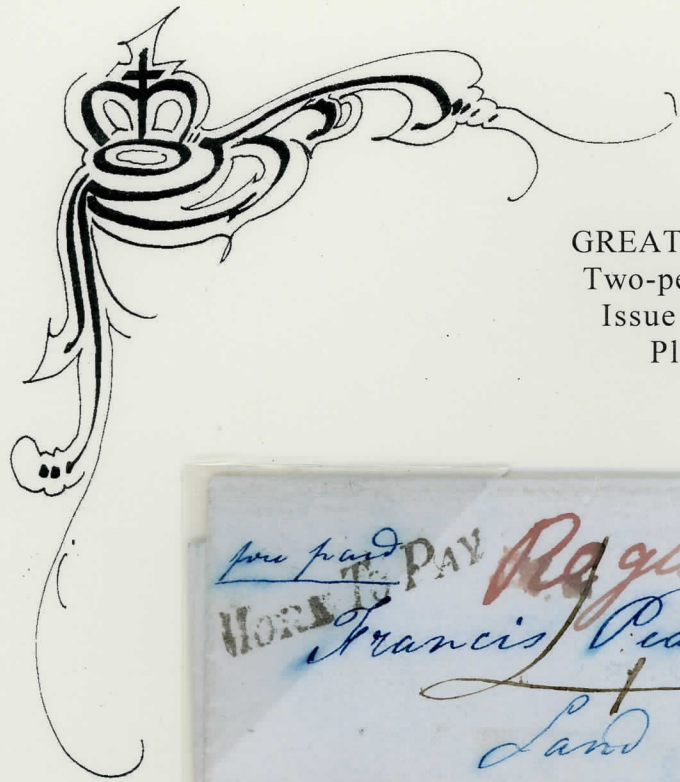 GREAT
Two-pe
Issue
Pl
paid
MORE TO PAY
Regi
Francis Pea
Land